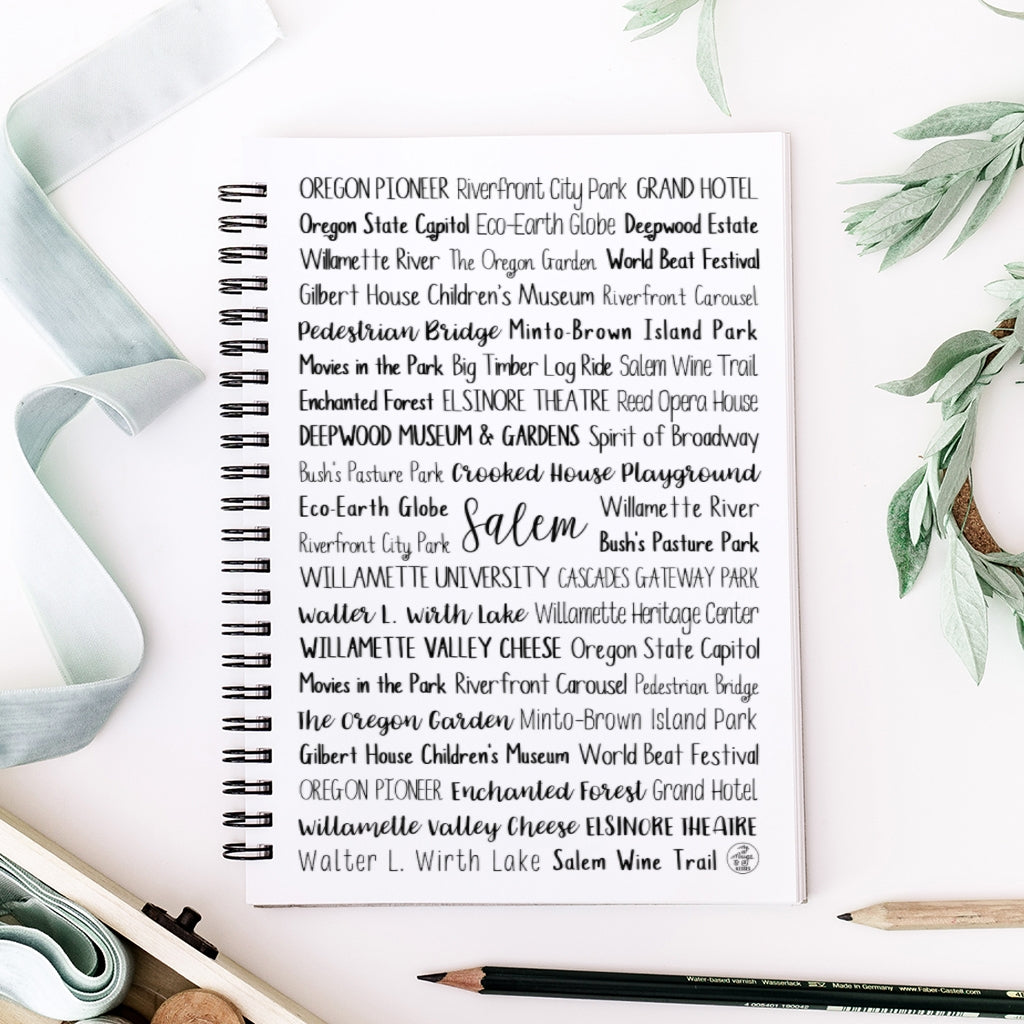 OREGON PIONEER Riverfront City Park GRAND HOTEL
Oregon State Capitol Eco-Earth Globe Deepwood Estate
Willamette River The Oregon Garden World Beat Festival
Gilbert House Children's Museum Riverfront Carousel
Pedestrian Bridge Minto-Brown Island Park
Movies in the Park Big Timber Log Ride Salem Wine Trail
Enchanted Forest ELSINORE THEATRE Reed Opera House
DEEPWOOD MUSEUM & GARDENS Spirit of Broadway
Bush's Pasture Park Crooked House Playground
Eco-Earth Globe Salem Willamette River
Riverfront City Park Bush's Pasture Park
WILLAMETTE UNIVERSITY CASCADES GATEWAY PARK
Walter L. Wirth Lake Willamette Heritage Center
WILLAMETTE VALLEY CHEESE Oregon State Capitol
Movies in the Park Riverfront Carousel Pedestrian Bridge
The Oregon Garden Minto-Brown Island Park
Gilbert House Children's Museum World Beat Festival
OREGON PIONEER Enchanted Forest Grand Hotel
Willamette Valley Cheese ELSINORE THEATRE
Walter L. Wirth Lake Salem Wine Trail
Water-based varnish Wasserlack Made in Germany www.Faber-Castell.com
4 005401 190042